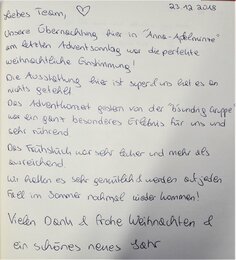 23.12.2018
Liebes Team, ♡
Unsere Übernachtung hier in "Anna-Apelmanne"
am letzten Adventssonntag war die perfekte
weihnachtliche Einstimmung!
Die Ausstattung hier ist super & uns hat es an
nichts gefehlt
Das Adventkonzert gestern von der
war ein ganz besonderes Erlebnis für uns und
sehr rührend
Das Frühstück war sehr lecker und mehr als
ausreichend
Wir hatten es sehr gemütlich & werden auf jeden
Fall im Sommer nochmal wieder kommen!
Vielen Dank & frohe Weihnachten &
ein schönes neues Jahr